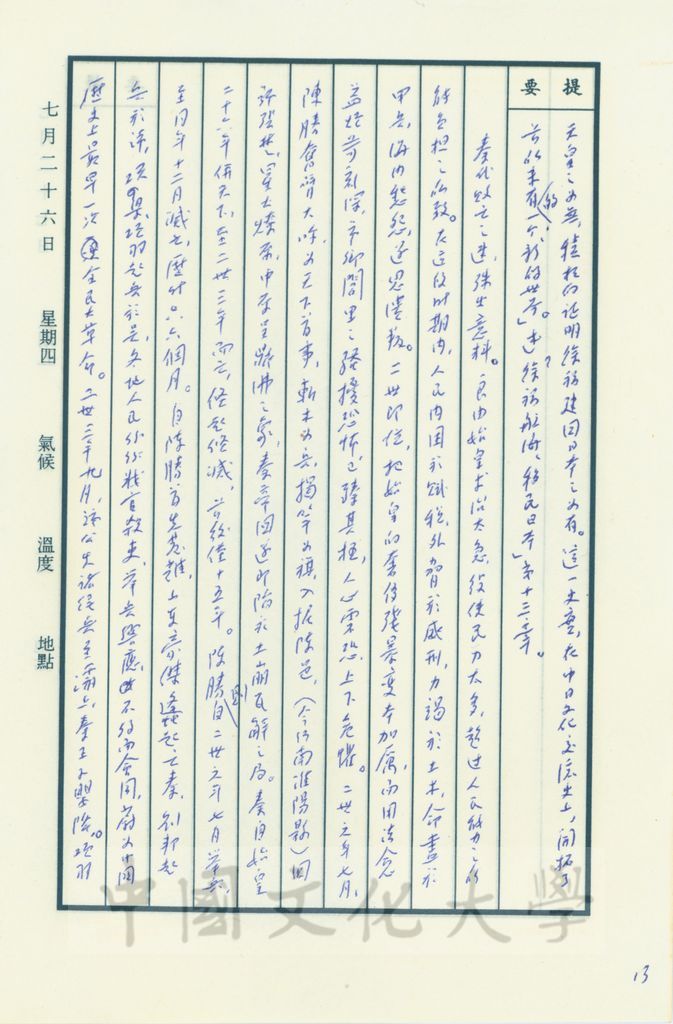 提要
天皇之為無,積極的証明徐福建國日本之為有。這一史蹟,在中日文化交流史上,開拓了
前所未有的一個「新的世界」。述「徐福航海、移民日本」第十三章。
秦代敗亡之速,殊出意料。良由始皇求治太急,役使民力太多,超過人民能力之所
能負担之所致。在這段時期內,人民內困於賦稅,外脅於威刑,力竭於土木,命盡於
甲兵,海內愁怨,遂思潰叛。二世即位,把始皇的奢侈殘暴變本加厲,而用法令愈
益苛刻深,市鄉閭里之騷擾恐怖已臻其極,人心震恐,上下危懼。二世元年七月,
陳勝奮臂大呼,為天下首事,斬木為兵,揭竿為旗,入據陳邑,(今河南淮陽縣)國
號張楚,星火燎原,中原呈鼎沸之象,秦帝國遂即陷於土崩瓦解之局。秦自始皇
二十六年併天下,至二世三年而亡,條起條滅,前後僅十五年。陳勝則自二世元年七月舉兵,
至同年十二月滅亡,歷時只六個月。自陳勝首先發難,山東豪傑遂蠭起亡秦,劉邦起
兵於沛,項梁、項羽起兵於吳,各地人民紛紛戕官殺吏,舉兵響應,不約而會同,蔚為中國
歷史上最早一次全民大革命。二世三年九月,沛公先諸侯兵至灞上,秦王子嬰降。項羽
七月二十六日 星期四 氣候 溫度 地點
中國文化大學
13